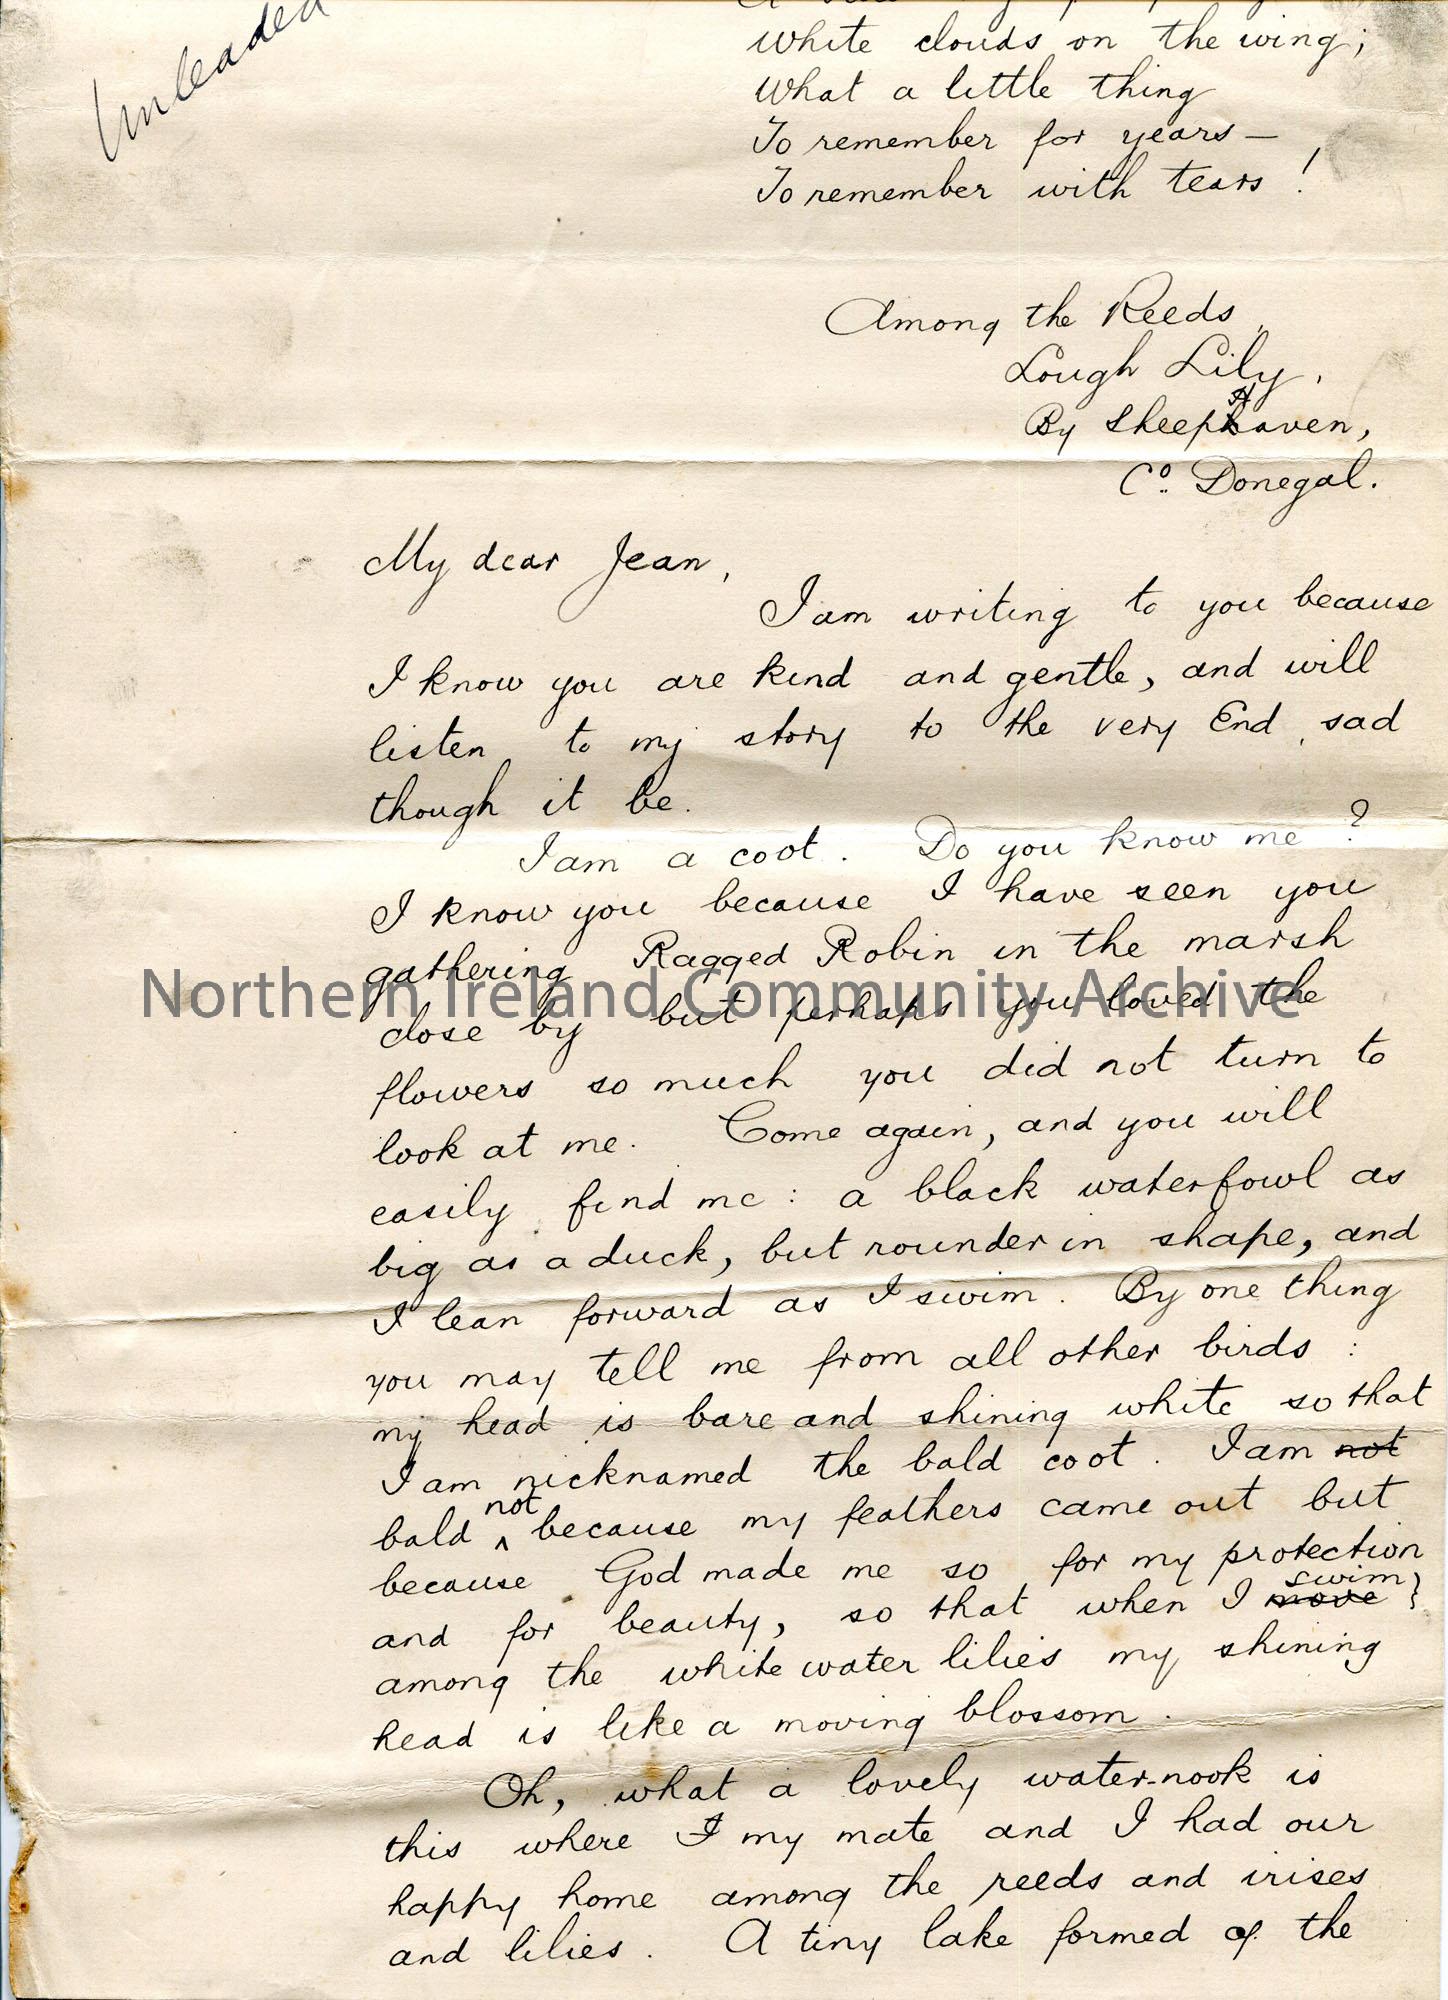 Unleaded
White clouds on the wing;
What a little thing
To remember for years—
To remember with tears!
Among the Reeds,
Lough Lily,
By SheepHaven,
Co. Donegal.
My dear Jean,
I am writing to you because
I know you are kind and gentle, and will
listen to my story to the very End, sad
though it be.
I am a coot. Do you know me?
I know you because I have seen you
gathering Ragged Robin in the marsh
Northern Ireland Community Archive
close by but perhaps you loved the
flowers so much you did not turn to
look at me. Come again, and you will
easily find me: a black waterfowl as
big as a duck, but rounder in shape, and
I lean forward as I swim. By one thing
you may tell me from all other birds:
my head is bare and shining white so that
I am nicknamed the bald coot. I am not
bald not because my feathers came out but
because God made me so for my protection
and for beauty, so that when I move swim
among the white water lilies my shining
head is like a moving blossom.
Oh, what a lovely water-nook is
this where I my mate and I had our
happy home among the reeds and irises
and lilies. A tiny lake formed of the